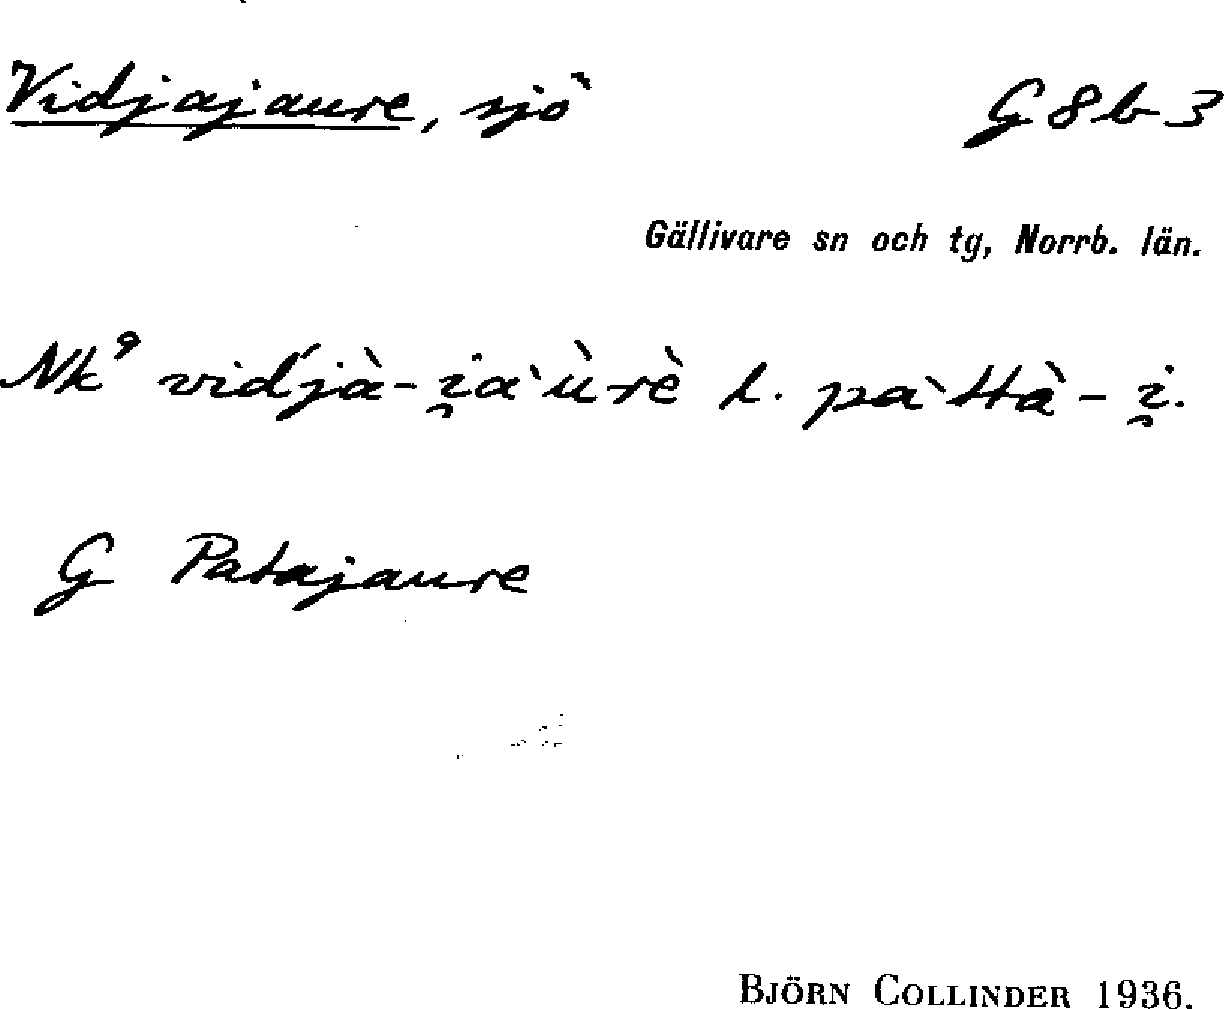 Vidjajaure, sjö G8b3
Gällivare sn och tg, Norrb. län.
Nk⁹ vid́jà-i̯aˋùrè l. paˋttà-i̯.
G Patajaure
BJÖRN COLLINDER 1936.